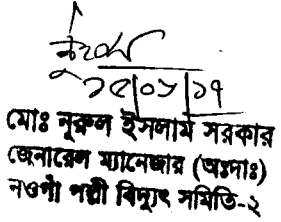 ১৫|০১|১৭
মোঃ নূরুল ইসলাম সরকার
জেনারেল ম্যানেজার (অঃদাঃ)
নওগাঁ পল্লী বিদ্যুৎ সমিতি-২